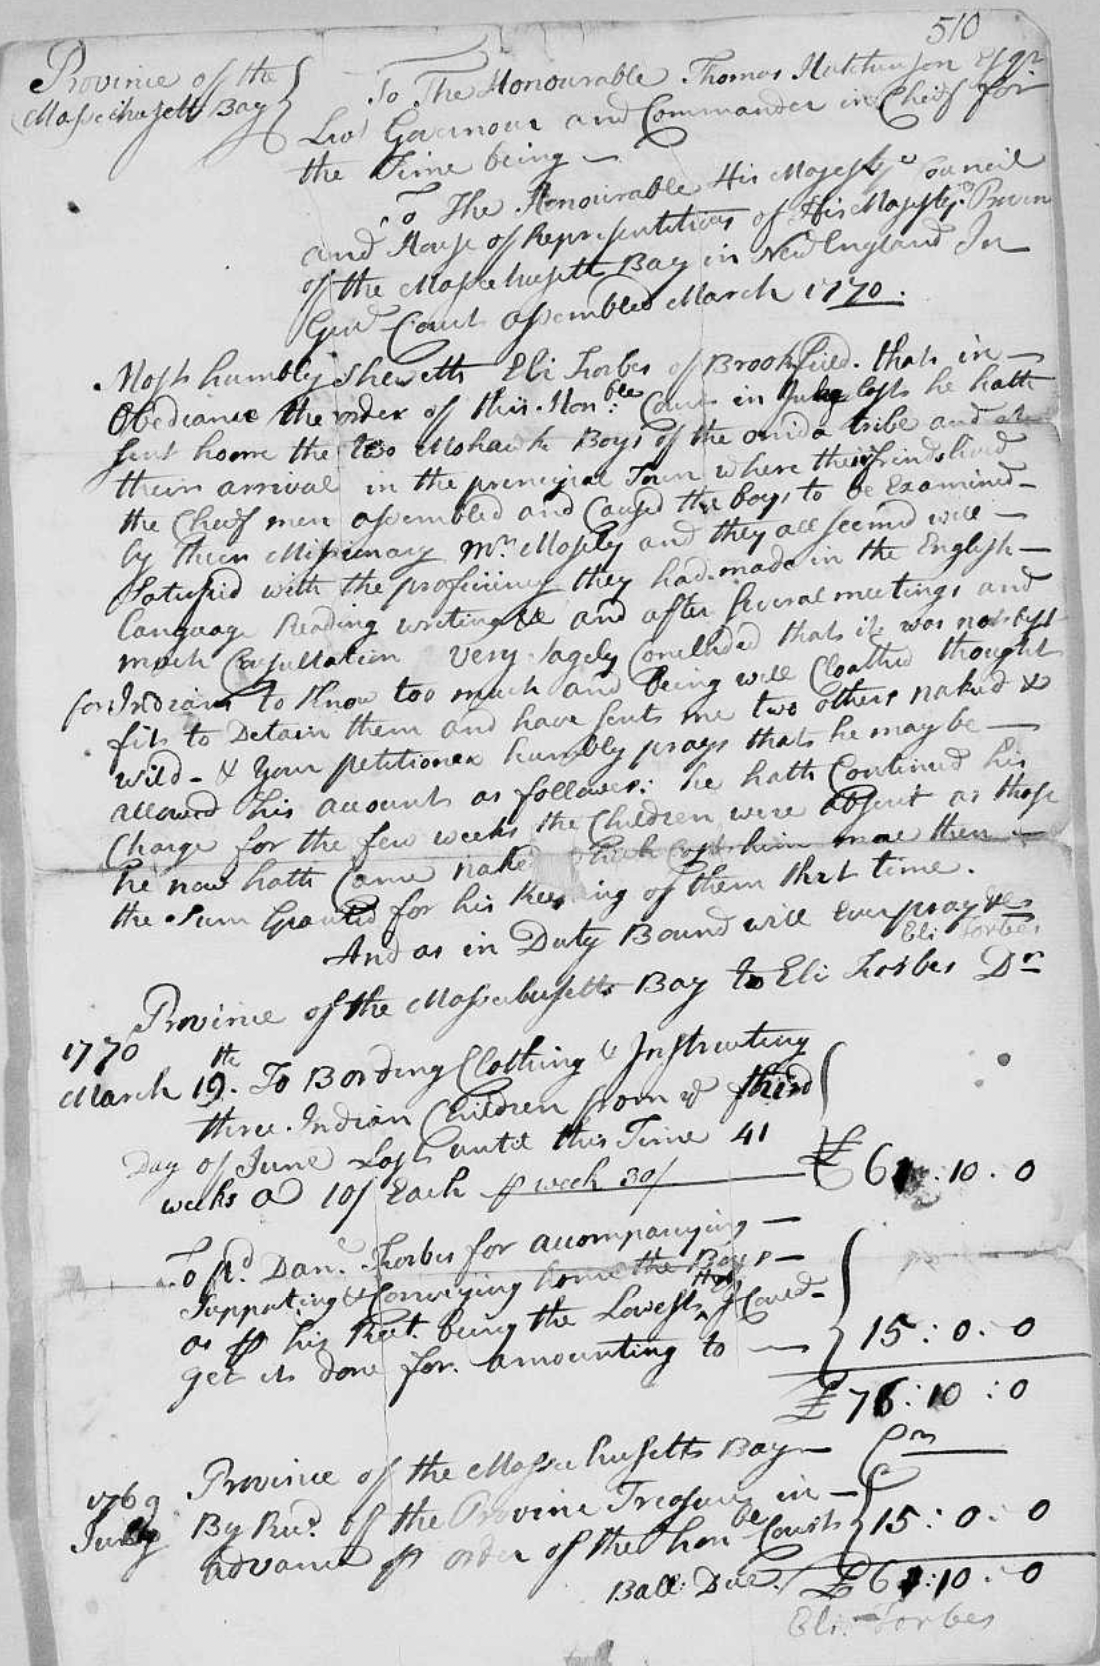 510
Province of the
Massachusetts Bay
To The Honourable Thomas Hutchinson Esqr
Lieu Governour and Commander in Cheif for
the Time being
To The Honourable His Majestys Council
and House of Representitives of His Majestys Provin
of the Massachusetts Bay in New England In
Genll Court assembled March 1770.
Most humbly Sheweth Eli Forbes of Brookfield. that in
Obediance the order of this Honble: Court in July last he hath
sent home the two Mohawk Boys of the onida tribe and at
their arrival in the principal Town where their frinds lived
the Cheif men assembled and Caused the boys to be Examined
by their Missionary Mr. Mosely and they all seemd well
Satisfied with the proficiency they had made in the English
Language Reading writing &c and after several meetings and
much Consultation very sagely Concluded that it was not best
for Indians to Know too much and being well Cloathed thought
fit to Detain them and have sent me two others naked &
wild - & Your petitioner humbly prays that he may be
allowed his accounts as follows: he hath Continued his
Charge for the few weeks the Children were absent as those
he now hath Came naked which Cost him more then
the Sum Granted for his Keeping of them that time.
And as in Duty Bound will Ever pray &c
Eli Forbes
Province of the Massachusetts Bay to Eli Forbes Dr
1770
March 19th. To Bording Clothing & Instructing
three Indian Children from ye third
Day of June Last until this Time 41
weeks @ 10/ Each ⅌ week 30/ £61:10.0
To pd. Danl. Forbes for accompanying
Supporting & Conveying home the Boys
as ⅌ his Rect. being the Lowest that I Could
get it done for. amounting to 15:0.0
£76:10:0
Province of the Massachusetts Bay Cr
1769
July By Recd. of the Province Treasury in
advance ⅌ order of the Honble Court 15:0.0
Ball: Due. £61:10.0
Eli Forbes